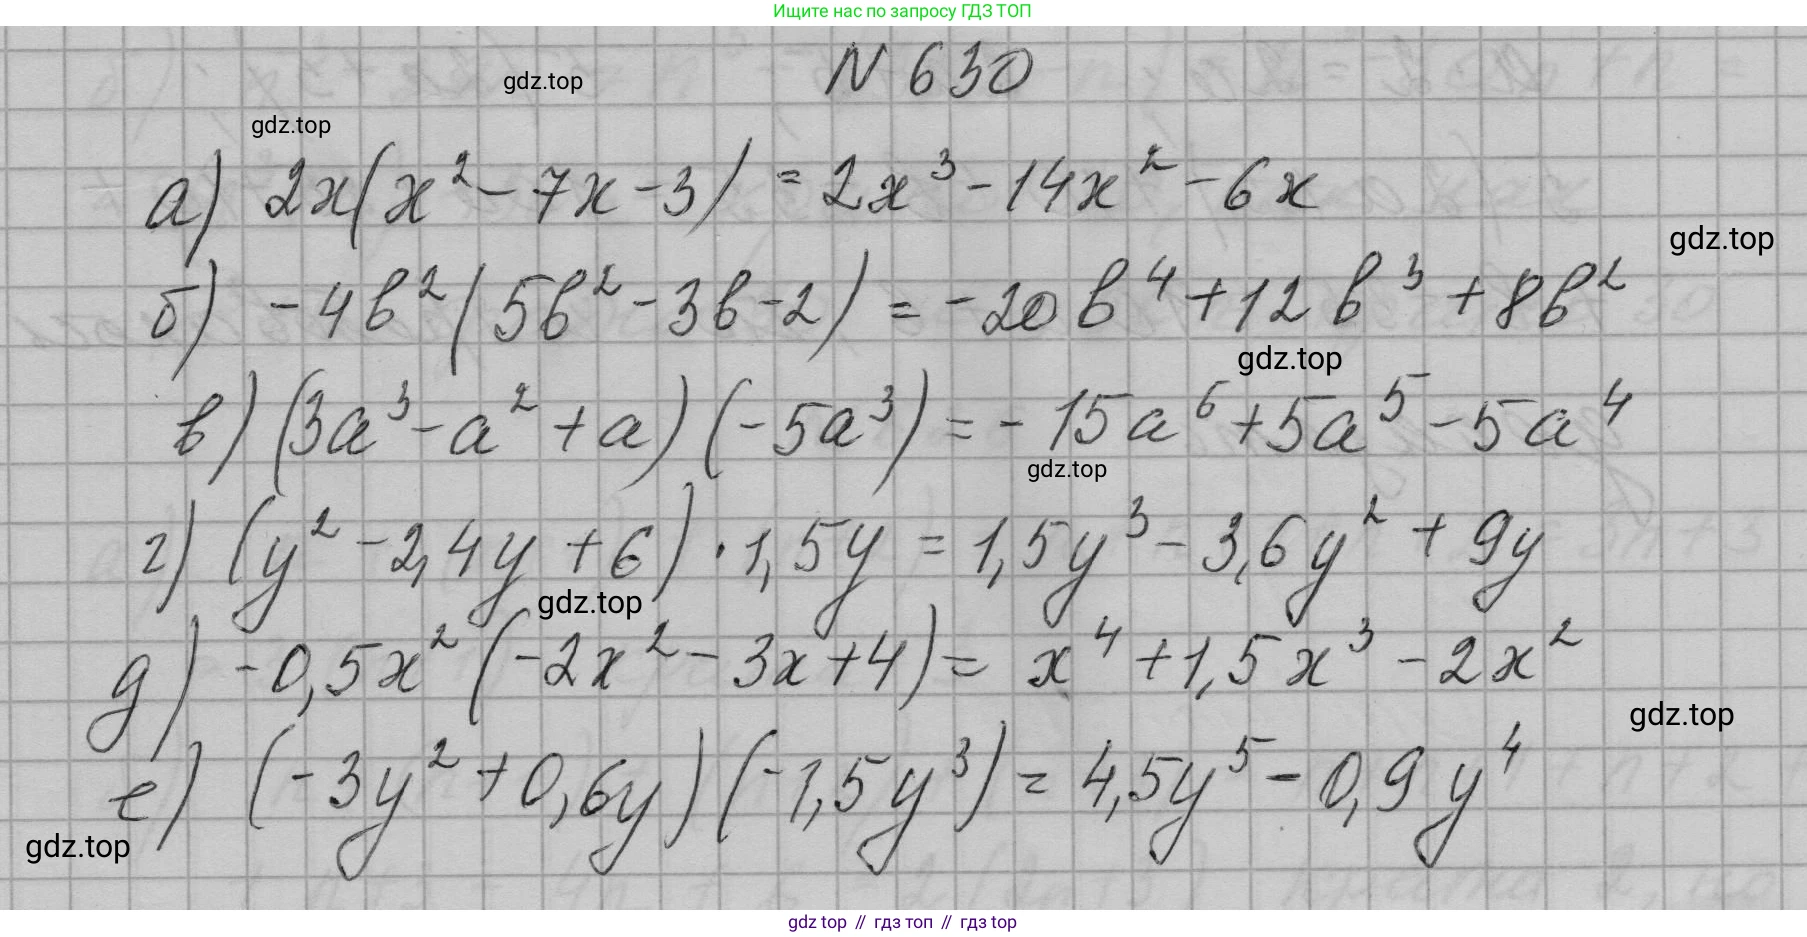 Ищите нас по запросу ГДЗ ТОП
N 630
gdz.top
gdz.top
а) 2x(x² - 7x - 3) = 2x³ - 14x² - 6x
gdz.top
б) -4b²(5b² - 3b - 2) = -20b⁴ + 12b³ + 8b²
gdz.top
в) (3a³ - a² + a)(-5a³) = -15a⁶ + 5a⁵ - 5a⁴
gdz.top
г) (y² - 2,4y + 6) · 1,5y = 1,5y³ - 3,6y² + 9y
gdz.top
д) -0,5x²(-2x² - 3x + 4) = x⁴ + 1,5x³ - 2x²
gdz.top
е) (-3y² + 0,6y)(-1,5y³) = 4,5y⁵ - 0,9y⁴
gdz.top
gdz top // гдз топ // gdz top